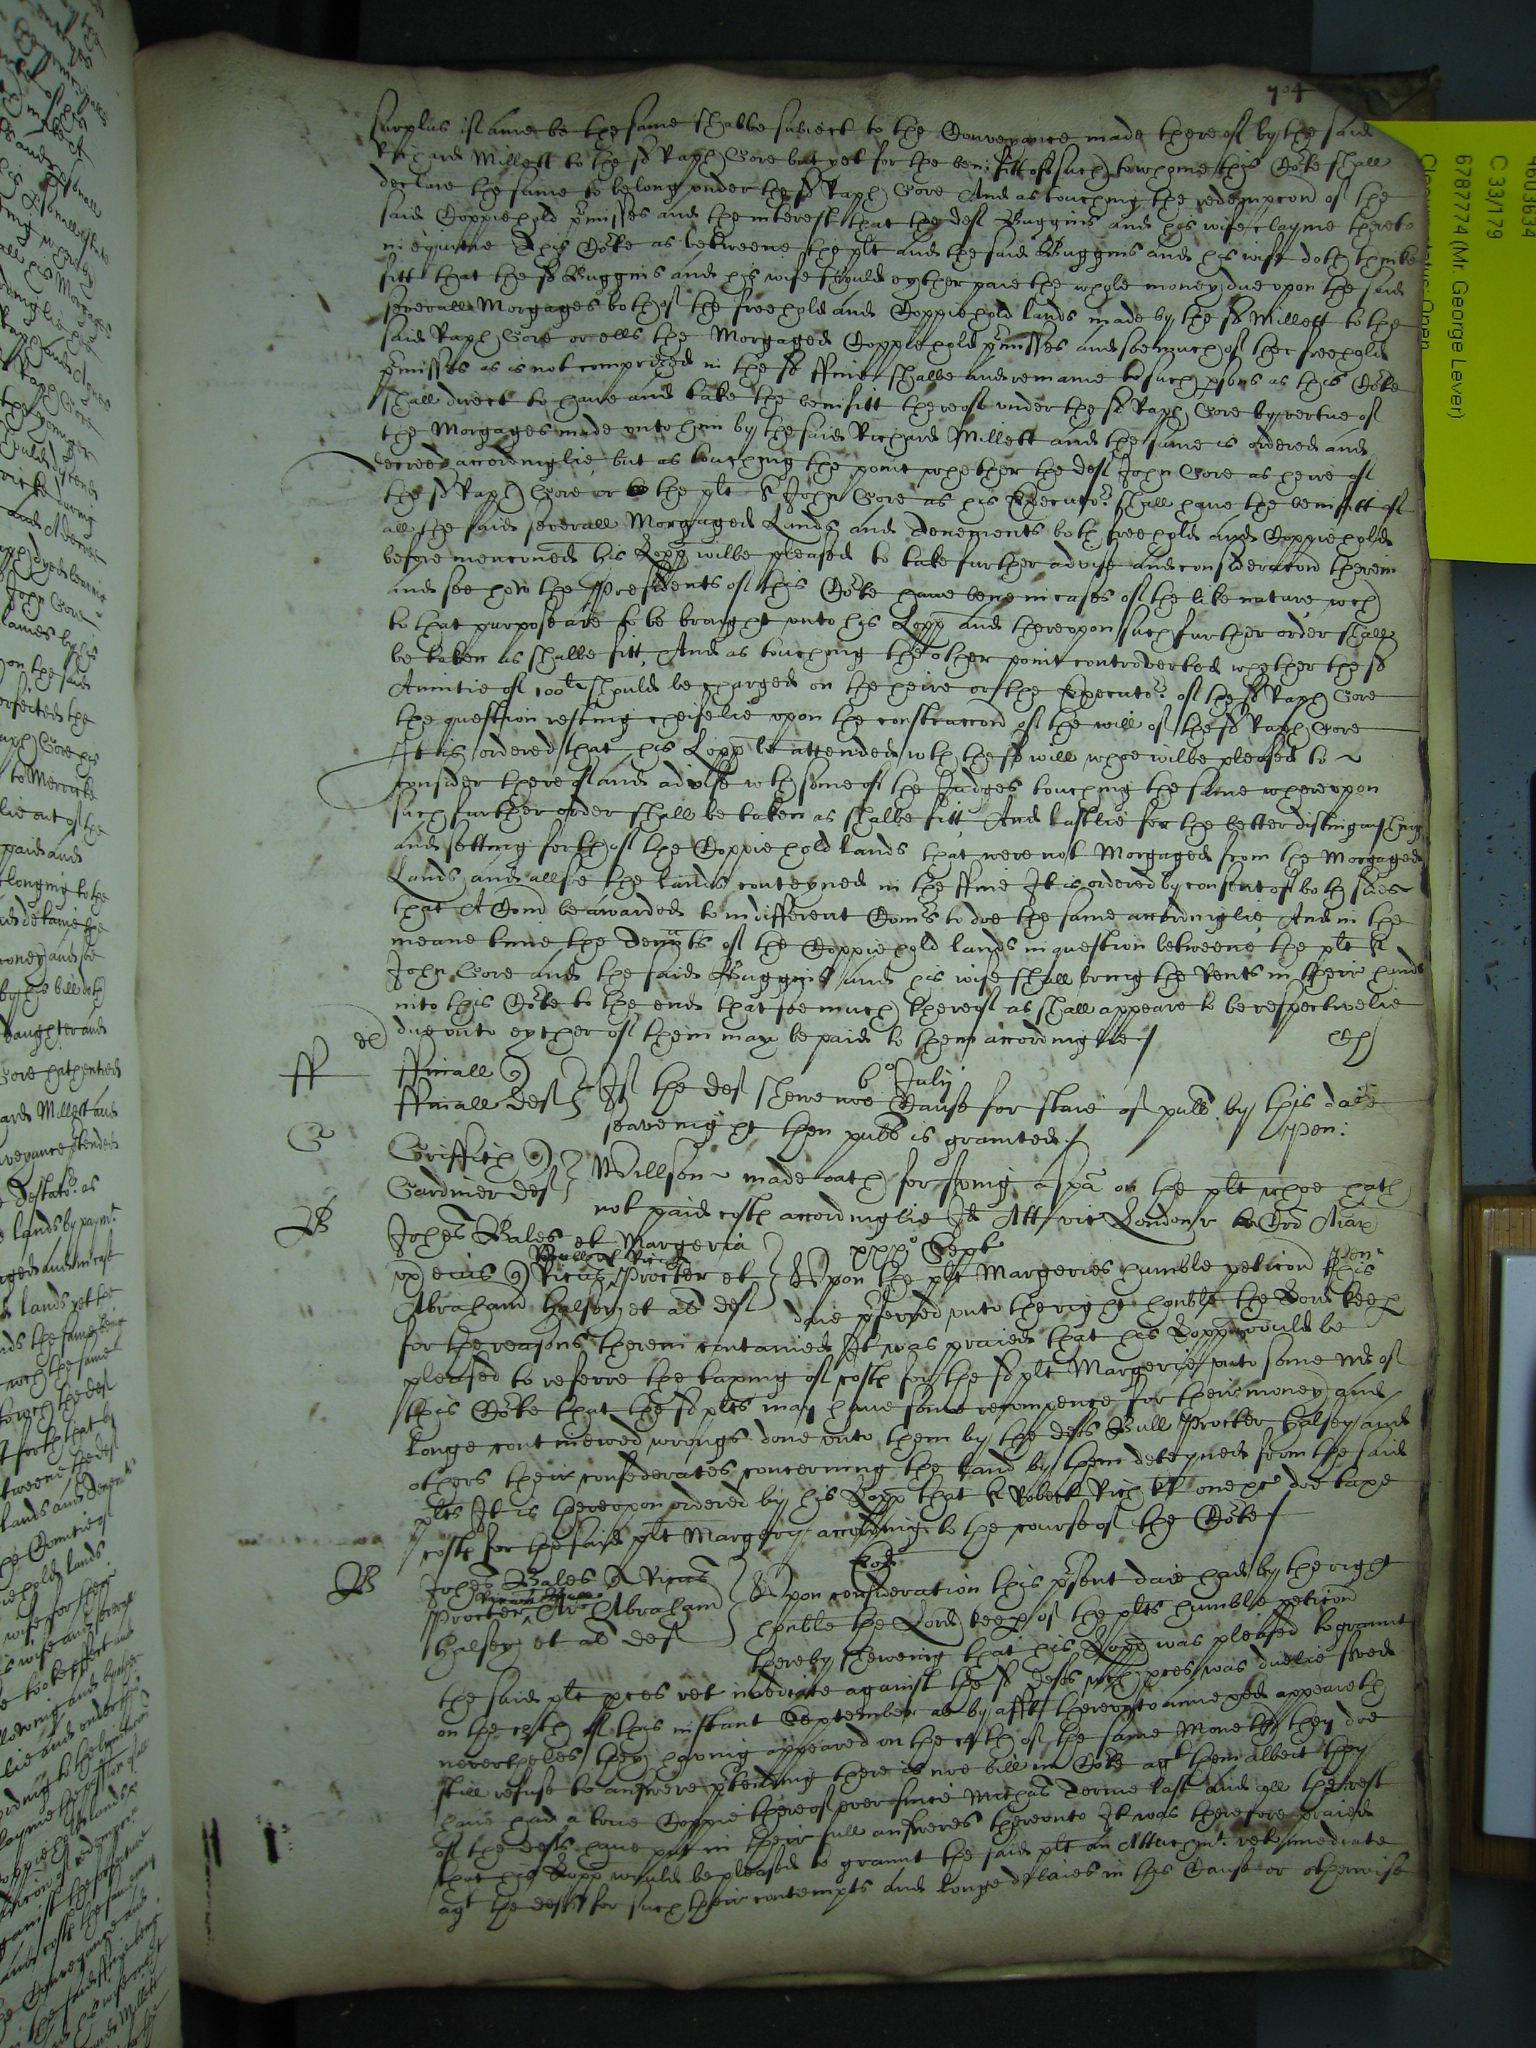 704
surplus if anie be the same shalbe subiect to the Conveyance made thereof by the said
Richard Millett to the sd Raph Gore but yet for the benifitt of such to whome this Co:te shall
declare the same to belong under the sd Raph Gore And as touching the redempcon of the
said Coppiehold p:misses and the interest that the def Buggins and his wife clayme thereto
in equitie This Co:te as betweene the plt and the said Buggins and his wife doth thinke
fitt that the sd Buggins and his wife should eyther paie the whole money due upon the said
severall Morgages both of the freehold and Coppiehold lands made by the sd Millett to the
said Raph Gore or ells the Morgaged Coppiehold p:misses and soe much of the freehold
p:misses as is not comprized in the sd ffine shalbe and remaine to such p:sons as this Co:te
shall direct to have and take the benifitt thereof under the sd Raph Gore by vertue of
the Morgages made unto him by the said Richard Millett and the same is ordered and
decreed accordinglie, but as touching the point whether the def John Gore as heire of
the sd Raph Gore or the plt Sr John Gore as his Executor shall have the benifitt of
all the said severall Morgaged Lands and Tenements both freehold and Coppiehold
before mencioned his Lopp wilbe pleased to take further advise and consideracon therein
and see how the Presidents of this Co:te have bene in cases of the like nature wch
to that purpose are to be brought unto his Lopp and thereupon such further order shall
be taken as shalbe fitt, And as touching the other point controverted whether the sd
Anuitie of 100l should be charged on the heire or the Executor of the sd Raph Gore
the question resting cheifelie upon the construccon of the will of the sd Raph Gore
It is ordered that his Lopp be attended wth the sd will whoe wilbe pleased to
consider thereof and advise wth some of the Judges touching the same whereupon
such further order shall be taken as shalbe fitt, And lastlie for the better distinguishing
and setting forth of the Coppiehold lands that were not Morgaged from the Morgaged
Lands and alsoe the lands conteyned in the ffine It is ordered by consent of both sides
that A Com be awarded to indifferent Com:rs to doe the same accordinglie And in the
meane time the Ten:nts of the Coppiehold lands in question betweene the plt Sr
John Gore and the said Buggins and his wife shall bring the Rents in their hands
into this Co:te to the end that soe much thereof as shall appeare to be respectivelie
due unto eyther of them may be paid to them accordinglie
v:o July
ff ffinall q
ffinall def If the def shewe noe Cause for staie of pub: by this daie
seavenight then pub: is graunted
G Griffith q
Gardiner def Willson made oath for s:ving a spa on the plt whoe hath
not paid costs accordinglie Id Att vic London
B Johes Bales et Margeria
ux eius q Ricu Procter et
Abraham Halsey et al def
xxx:o Sept
Upon the plt Margeries humble peticon this
daie p:ferred unto the right honble the Lord Keep
for the reasons therein contained It was praied that his Lopp would be
pleased to referre the taxing of costs for the sd plt Margerie unto some Mr of
this Co:te that the sd plts may have some recompence for their money and
longe continewed wrongs done unto them by the defts Bull Procter Halsey and
others their confederates concerning the land by them deteyned from the said
plts It is thereupon ordered by his Lopp that Sr Robert Rich doe taxe
costs for the said plt Margery according to the course of the Co:te
B Johes Bales q Ricus
Procter Abraham
Halsey et al def
Eod
Upon consideration this p:sent daie had by the right
honble the Lord Keep of the plts humble peticon
thereby shewing that his Lopp was pleased to graunt
the said plt p:ces ret imediate against the sd defts wch p:ces was duelie s:ved
on the of this instant September as by afft thereunto annexed appeareth
neverthelesse they having appeared on the of the same Moneth they doe
still refuse to answere p:tending there is noe bill in Co:te agt them albeit they
have had a true Coppie thereof ever since Michas Terme last and all the rest
of the defts have put in their full answeres thereunto It was therefore praied
that his Lopp would be pleased to graunt the said plt an Attachmt ret imediate
agt the defts for such their contempts and longe delaies in this Cause or otherwise
C 33/179
6787774 (Mr. George Lever)